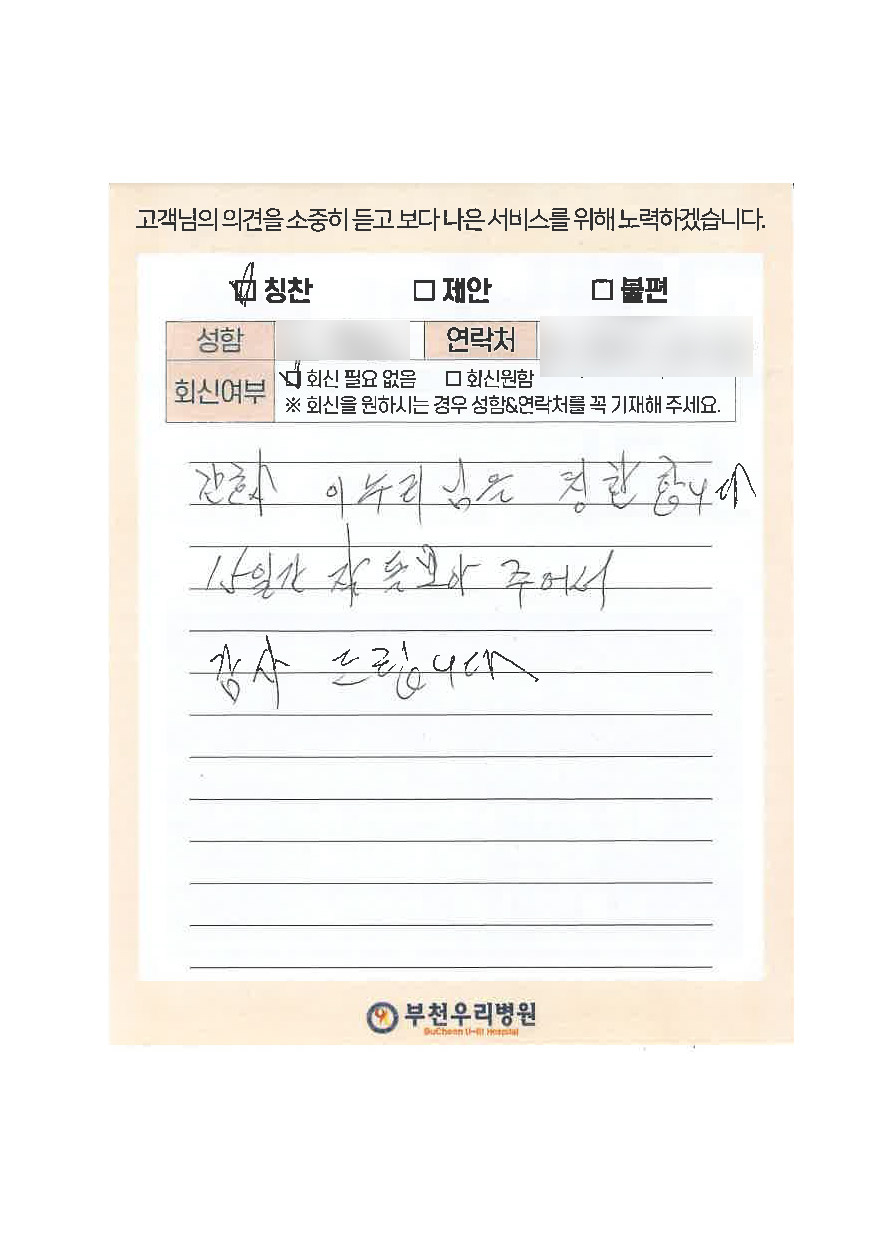 고객님의 의견을 소중히 듣고 보다 나은 서비스를 위해 노력하겠습니다.
칭찬 제안 불편
성함 연락처
회신여부 회신 필요 없음 회신원함
※ 회신을 원하시는 경우 성함&연락처를 꼭 기재해 주세요.
간호사 이누리님을 칭찬합니다
15일간 잘 돌보아 주어서
감사 드립니다
부천우리병원
BuCheon U-Ri Hospital